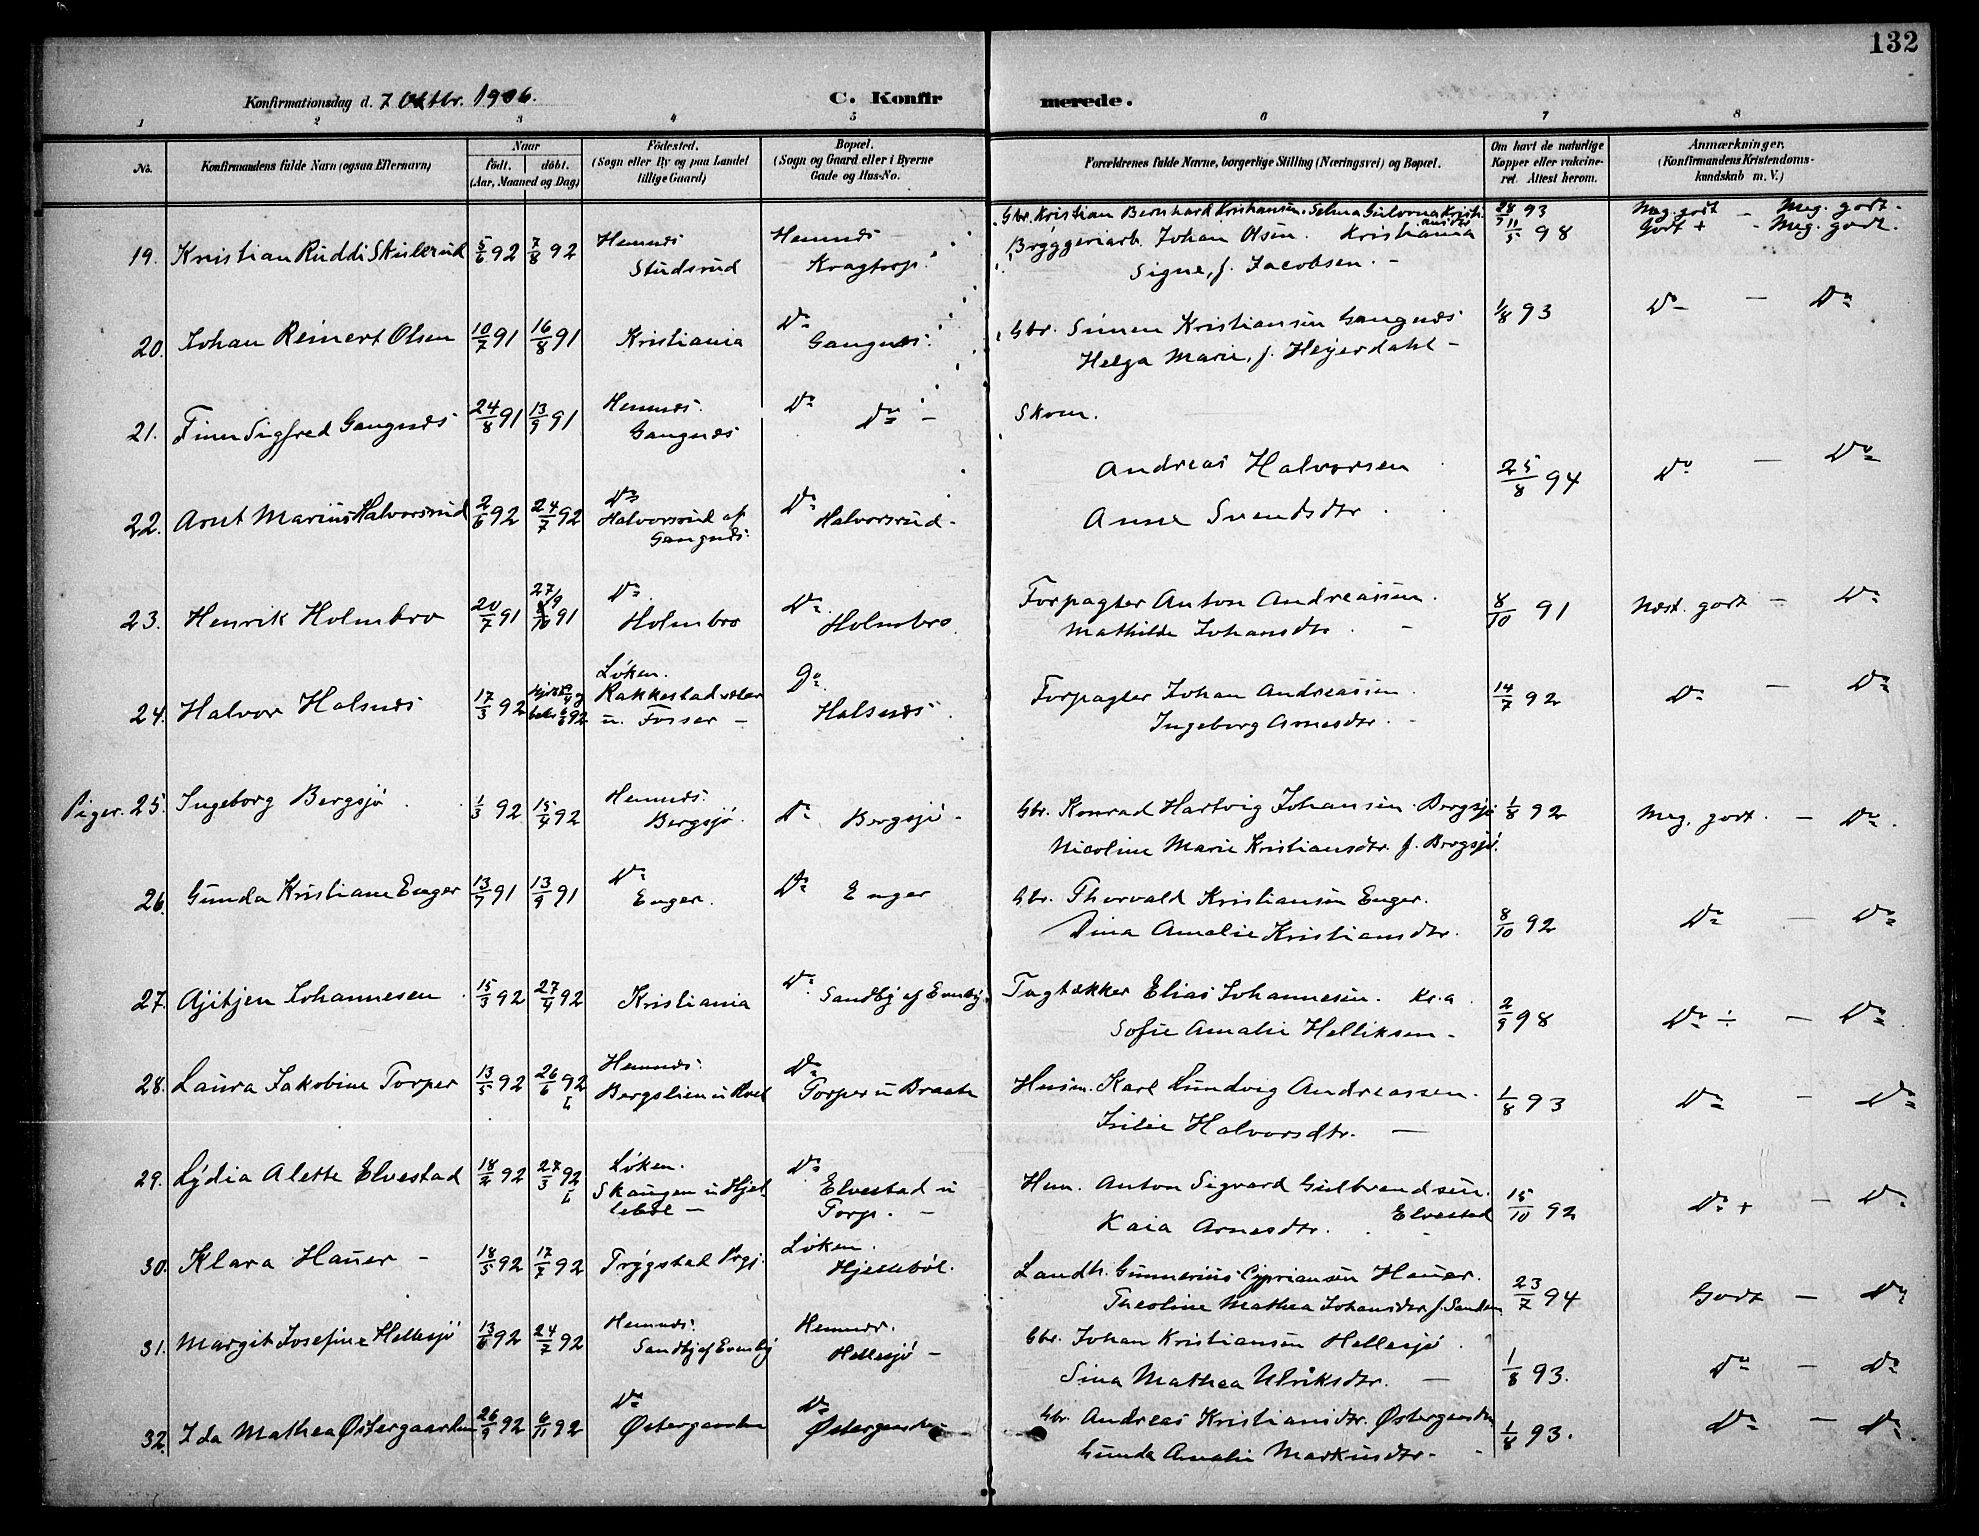 132
Konfirmationsdag d. 7 Oktbr. 1906.
C. Konfirmerede.
1 2 3 4 5 6 7 8
No.
Konfirmandens fulde Navn (ogsaa Efternavn)
Naar
født. døbt.
(Aar, Maaned og Dag)
Fødested.
(Sogn eller By og paa Landet
tillige Gaard)
Bopæl.
(Sogn og Gaard eller i Byerne
Gade og Hus-No.
Forældrenes fulde Navne, borgerlige Stilling (Næringsvei) og Bopæl.
Om havt de naturlige
Kopper eller vaccine-
ret. Attest herom.
Anmærkninger.
(Konfirmandens Kristendoms-
kundskab m. V.)
Gbr. Kristian Bernhard Kristiansen. Selma 28/7 93 Meg. godt – Meg. godt.
19. Kristian Ruddi Skulerud 5/6 92 7/8 92 Hemnes
Studsrud Hemnes
Kragtorp. Bryggeriarb. Johan Olsen. Kristiania
Signe, f. Jacobsen. – 11/5 98 Godt + – Meg. godt.
20. Johan Reinert Olsen 10/7 91 16/8 91 Kristiania Do
Gangnæs. Gbr. Simen Kristiansen Gangnæs
Helga Marie, f. Heyerdahl – 1/8 93 Do – Do
21. Finn Sigfred Gangnæs 24/8 91 13/9 91 Hemnæs.
Gangnæs Do Do – Skom.
22. Arnt Marius Halvorsrud 2/6 92 24/7 92 Do
Halvorsrud af
Gangnæs. Do Halvorsrud – Andreas Halvorsen
Anne Svendsdtr. 25/8 94 Do – Do
23. Henrik Holmbro 20/7 91 27/9 91 Do
Holmbro Do
Holmbro Forpagter Anton Andreassen.
Mathilde Johansdtr. – 8/10 91 Næst. godt – Do
24. Halvor Halsnæs 17/3 92 Løken.
Rakkestad
u. Fosser – Do
Halsnæs. Forpagter Johan Andreassen.
Ingeborg Arnesdtr. – 14/7 92 Do – Do
Piger. 25. Ingeborg Bergsjø 1/3 92 15/4 92 Hemnæs.
Bergsjø. Do Bergsjø – Gbr. Konrad Hartvig Johansen Bergsjø
Nicoline Marie Kristiansdtr. f. Bergsjø. 1/8 92 Meg. godt. – Do.
26. Gunda Kristiane Enger 13/7 91 13/9 91 Do
Enger. Do Enger Gbr. Thorvald Kristiansen Enger.
Dina Amalie Kristiansdtr. 8/10 92 Do – Do
27. Ajitjen Johannesen 15/3 92 27/4 92 Kristiania Do
Sandbj af Evenby. Tagtækker Elias Johannesen. Kr.a
Sofie Amalie Helliksen – 2/9 98 Do ÷ – Do
28. Laura Jakobine Torper 13/5 92 26/6 92 Hemnæs.
Bergslien u Do
Torper u Braate Husm. Karl Lundvig Andreassen.
Isilie Halvorsdtr. – 1/8 93 Do – Do
29. Lydia Alette Elvestad 18/2 92 27/3 92 Løken.
Skaugen u Hjel
lebøl – Do
Elvestad u
Torp. – Hum. Anton Sigvard Gulbrandsen.
Elvestad
Kaia Arnesdtr. 15/10 92 Do + – Do
30. Klara Hauer – 18/5 92 17/7 92 Trygstad Prgj. Løken.
Hjellebøl. Landh. Gunnerius Cypriansen Hauer.
Theoline Mathea Johansdtr f. Sanden 23/7 94 Godt – Do
31. Margit Josefine Hellesjø 13/6 92 24/7 92 Hemnæs.
Sandbj af Evenby Hemnæs.
Hellesjø – Gbr. Johan Kristiansen Hellesjø
Sina Mathea Ulriksdtr. – 1/8 93. Do – Do
32. Ida Mathea Østergaarden 26/9 92 6/11 92 Do
Østergaarden Do
Østergaarden Gbr. Andreas Kristiansdtr. Østergaarden
Gunda Amalie Markusdtr. – 1/8 93. Do – Do.